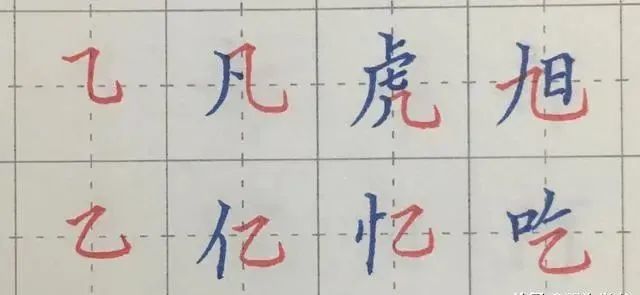 ㇈ 凡 虎 旭
乙 亿 忆 吃